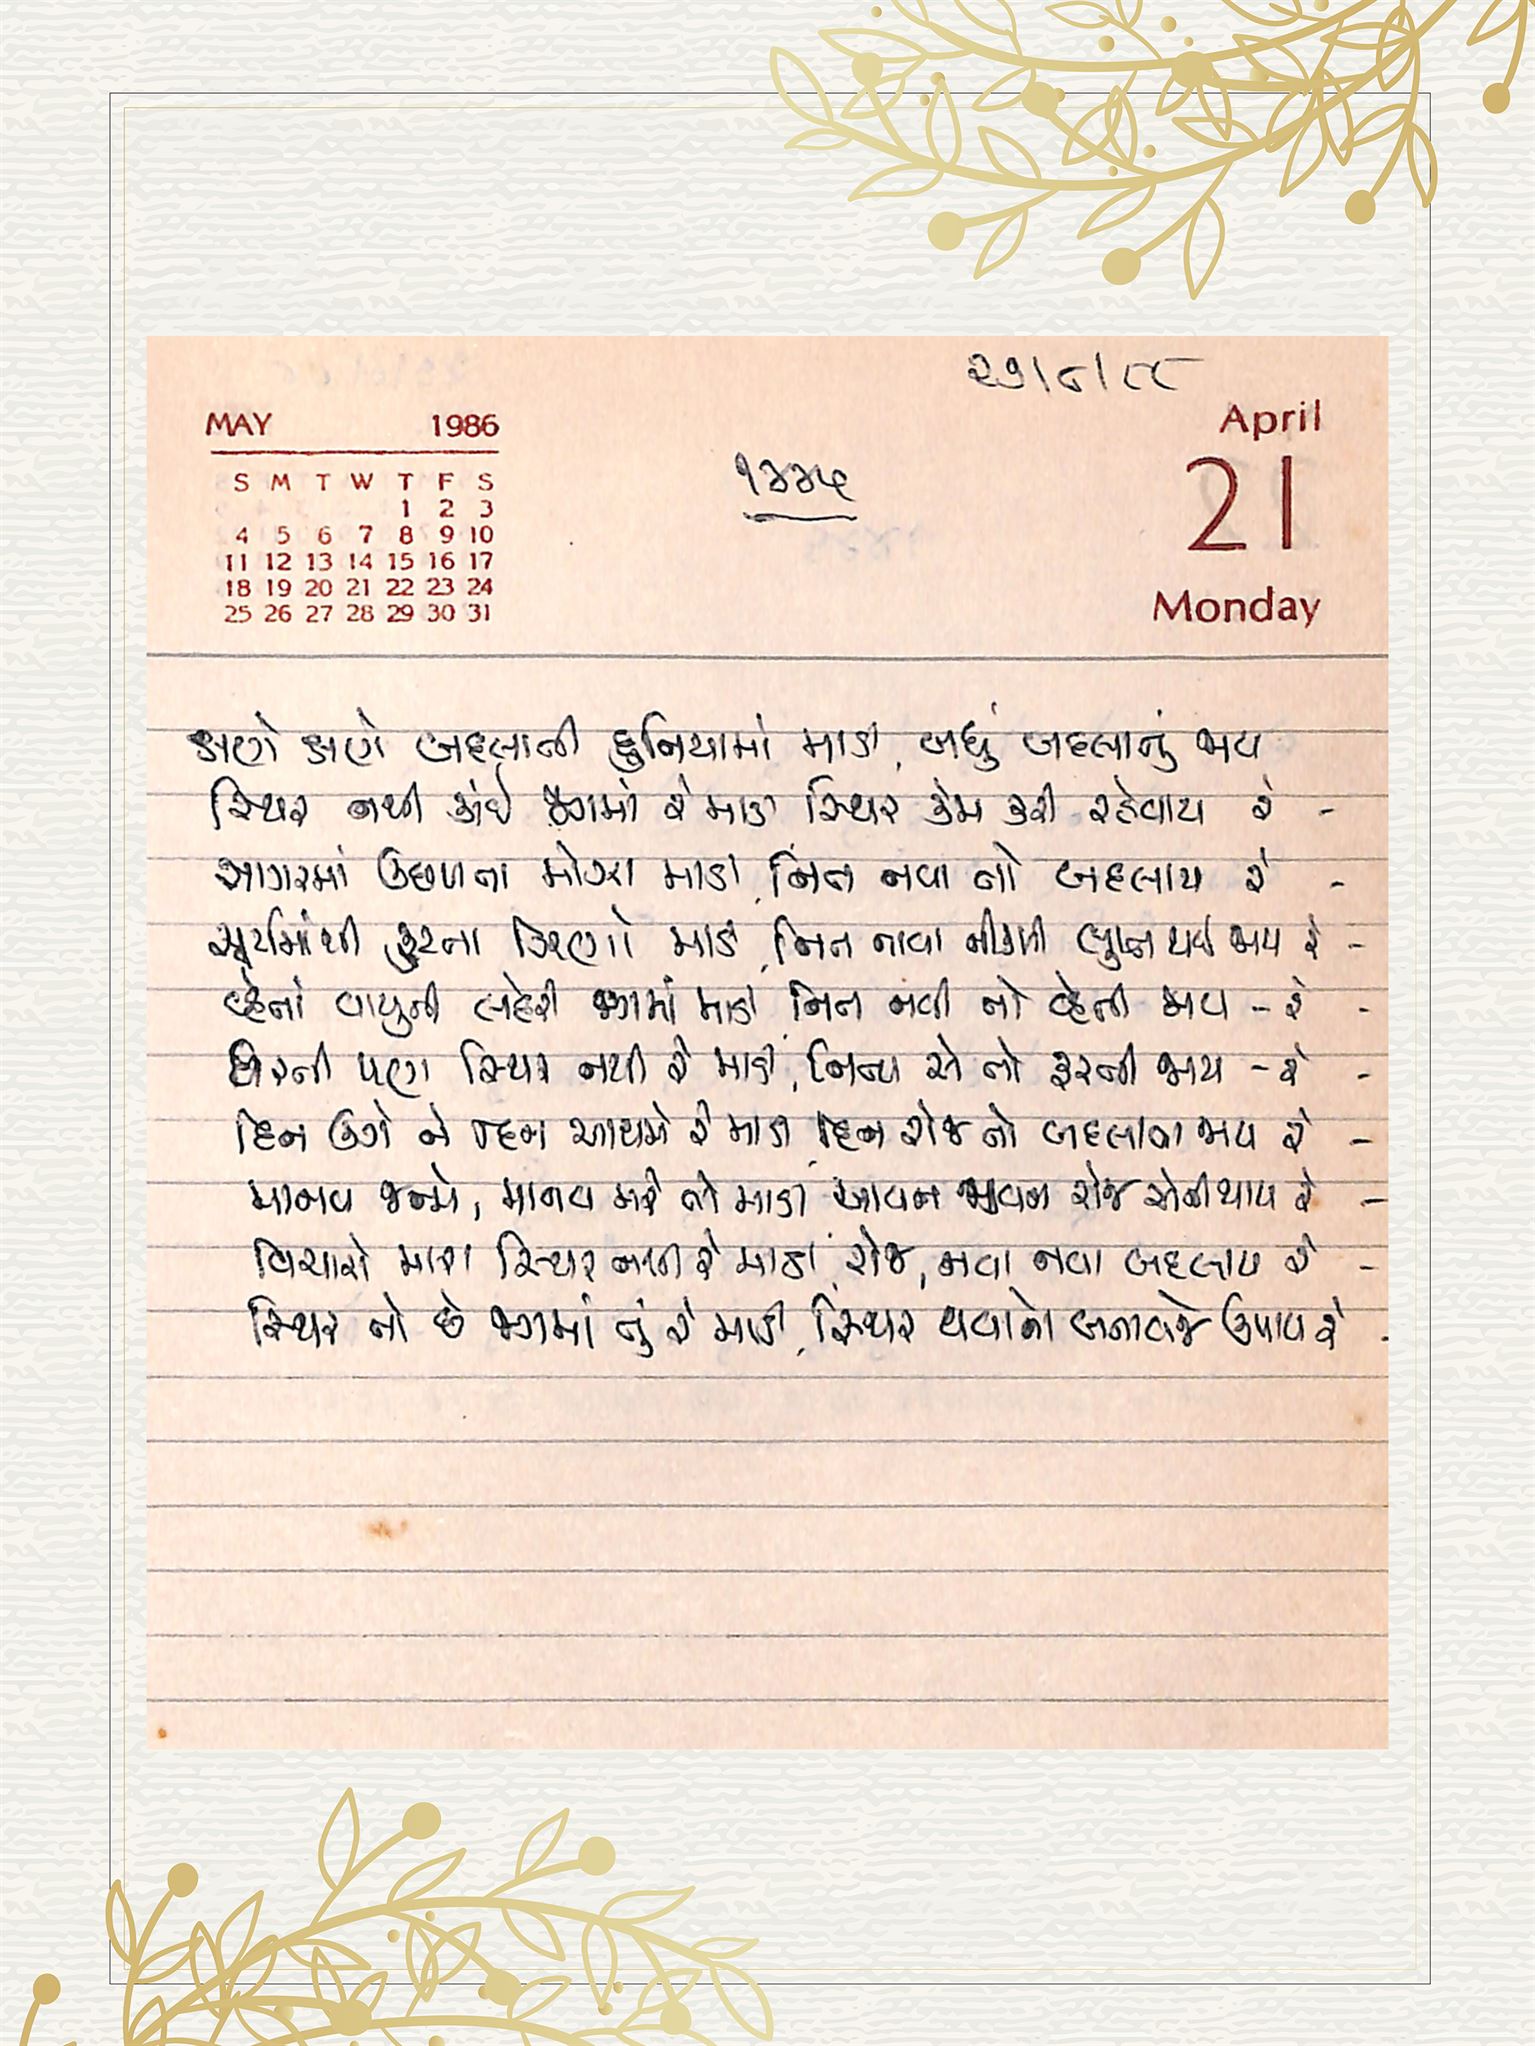 ૨૭/૮/૮૮
MAY 1986
April
S M T W T F S
1 2 3
4 5 6 7 8 9 10
11 12 13 14 15 16 17
18 19 20 21 22 23 24
25 26 27 28 29 30 31
૧૪૪૫
21
Monday
ક્ષણે ક્ષણે બદલાતી દુનિયામાં માડી, બધું બદલાતું જાય
સ્થિર નથી કાંઈ જગમાં રે માડી સ્થિર કેમ કરી રહેવાય રે -
સાગરમાં ઉછળતા મોજા માડી, નિત નવા તો બદલાય રે -
સૂર્યમાંથી ફુટતા કિરણો માડી, નિત નવા નીકળી લુપ્ત થઈ જાય રે -
વ્હેતાં વાયુની લહેરી જગમાં માડી, નિત નવી તો વ્હેતી જાય - રે -
ધરતી પણ સ્થિર નથી રે માડી, નિત્ય એ તો ફરતી જાય - રે -
દિન ઉગે ને દિન આથમે રે માડી, દિન રોજ તો બદલાતા જાય રે -
માનવ જન્મે, માનવ મરે તો માડી આવન જાવન રોજ એની થાય રે -
વિચારો મારા સ્થિર નથી રે માડી, રોજ, નવા નવા બદલાય રે -
સ્થિર તો છે જગમાં તું રે માડી, સ્થિર થવાનો બતાવજે ઉપાય રે -